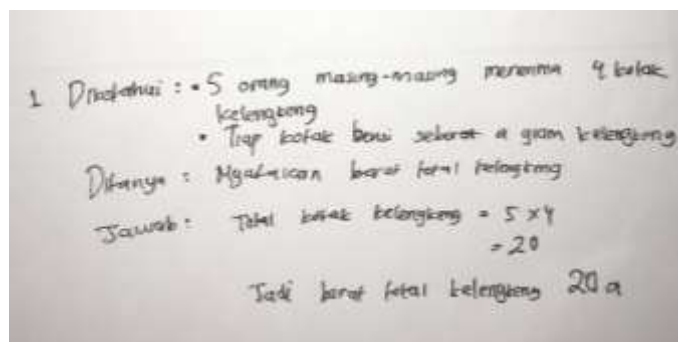 1 Diketahui : • 5 orang masing-masing menerima 4 kotak
kelengkeng
• Tiap kotak berisi seberat a gram kelengkeng
Ditanya : berat total
Jawab : Total kotak kelengkeng = 5 x 4
= 20
Jadi berat total kelengkeng 20 a